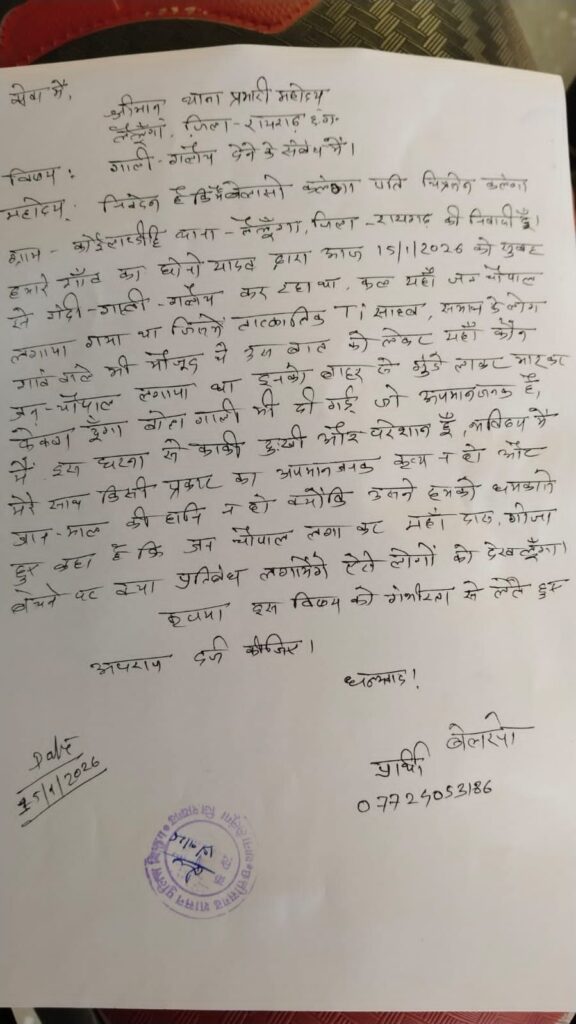 सेवा में,
श्रीमान् थाना प्रभारी महोदय
लैलूँगा, जिला - रायगढ़ छ.ग.
विषय : गाली - गलौच देने के संबंध में।
महोदय, निवेदन है कि मैं बेलासो कलंगा पति चित्रसेन कलंगा
ग्राम - थाना - लैलूँगा, जिला - रायगढ़ की निवासी हूँ।
हमारे गाँव का यादव द्वारा आज 15/1/2026 को सुबह
से गंदी - गाली - गलौच कर रहा था, कल यहाँ जन चौपाल
लगाया गया था जिसमें तात्कालिक Ti साहब, समाज के लोग
गांव वाले भी मौजूद थे इस बात को लेकर यहाँ कौन
जन - चौपाल लगाया था इनको बाहर से गुंडे लाकर मारकर
फेंकवा दूँगा बोला गाली भी दी गई जो अपमानजनक है,
मैं इस घटना से काफी दुःखी और परेशान हूँ, भविष्य में
मेरे साथ किसी प्रकार का अपमानजनक कृत्य न हो और
जान - माल की हानि न हो क्योंकि उसने हमको धमकाते
हुए कहा है कि जन चौपाल लगा कर यहाँ दारू, गांजा
बेचने पर क्या प्रतिबंध लगायेंगे ऐसे लोगों को देख लूँगा।
कृपया इस विषय को गंभीरता से लेते हुए
अपराध दर्ज कीजिए।
धन्यवाद!
Date
15/1/2026
प्रार्थी बेलासो
07724053186